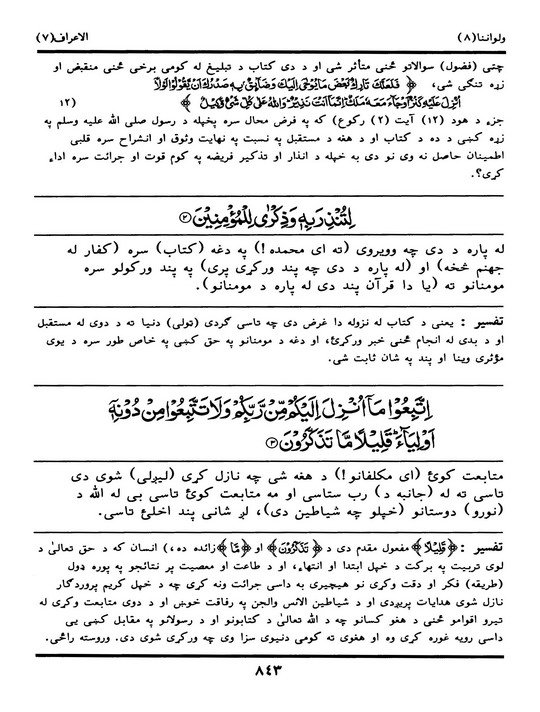 ولواننا(٨) الاعراف(٧)
چتی (فضول) سوالاتو څنی متأثر شی او د دی کتاب د تبلیغ له کومی برخی څنی منقبض او
زړه تنګی شی، ﴿ فَلَعَلَّكَ تَارِكٌ بَعْضَ مَا يُوحَىٰ إِلَيْكَ وَضَائِقٌ بِهِ صَدْرُكَ أَن يَقُولُوا لَوْلَا
أُنزِلَ عَلَيْهِ كَنزٌ أَوْ جَاءَ مَعَهُ مَلَكٌ إِنَّمَا أَنتَ نَذِيرٌ وَاللَّهُ عَلَىٰ كُلِّ شَيْءٍ وَكِيلٌ ﴾ (١٢)
جزء د هود (١٢) آیت (٢) رکوع) که په فرض محال سره پخپله د رسول صلی الله علیه وسلم په
زړه کښی د ده د کتاب او د هغه د مستقبل په نسبت په نهایت وثوق او انشراح سره قلبی
اطمینان حاصل نه وی نو دی به خپله د انذار او تذکیر فریضه په کوم قوت او جرائت سره اداء
کړی؟.
لِتُنذِرَ بِهِ وَذِكْرَىٰ لِلْمُؤْمِنِينَ ﴿٢﴾
له پاره د دی چه وویروی (ته ای محمده!) په دغه (کتاب) سره (کفار له
جهنم څخه) او (له پاره د دی چه پند ورکړی پری) په پند ورکولو سره
مومنانو ته (یا دا قرآن پند دی له پاره د مومنانو).
تفسیر : یعنی د کتاب له نزوله دا غرض دی چه تاسی ګردی (ټولی) دنیا ته د دوی له مستقبل
او د بدی له انجام څنی خبر ورکړئ، او دغه د مومنانو په حق کښی په خاص طور سره د یوی
مؤثری وینا او پند په شان ثابت شی.
اِتَّبِعُوا مَا أُنزِلَ إِلَيْكُم مِّن رَّبِّكُمْ وَلَا تَتَّبِعُوا مِن دُونِهِ
أَوْلِيَاءَ قَلِيلًا مَّا تَذَكَّرُونَ ﴿٣﴾
متابعت کوئ (ای مکلفانو!) د هغه شی چه نازل کړی (لیږلی) شوی دی
تاسی ته له (جانبه د) رب ستاسی او مه متابعت کوئ تاسی بی له الله د
(نورو) دوستانو (خپلو چه شیاطین دی)، لږ شانی پند اخلئ تاسی.
تفسیر : ﴿ قَلِيلًا ﴾ مفعول مقدم دی د ﴿ تَذَكَّرُونَ ﴾ او ﴿ مَّا ﴾ زائده ده،) انسان که د حق تعالیٰ د
لوی تربیت په برکت د خپل ابتدا او انتهاء، او د طاعت او معصیت پر نتائجو په پوره دول
(طریقه) فکر او دقت وکړی نو هیچیری به داسی جرائت ونه کړی چه د خپل کریم پروردګار
نازل شوی هدایات پریږدی او د شیاطین الانس والجن په رفاقت خوښ او د دوی متابعت وکړی له
تیرو اقوامو څنی د هغو کسانو چه د الله تعالیٰ د کتابونو او د رسولانو په مقابل کښی یی
داسی رویه غوره کړی وه او هغوی ته کومی دنیوی سزا وی چه ورکړی شوی دی. وروسته راځی.
٨٤٣